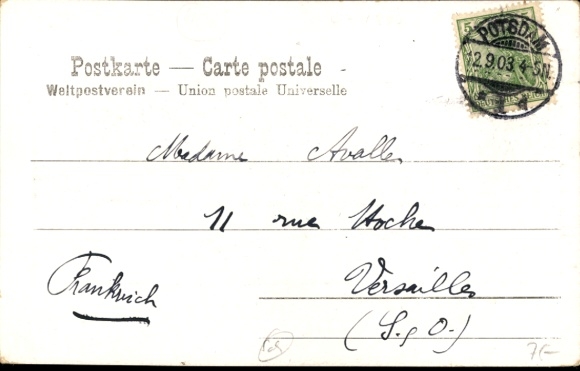 Postkarte — Carte postale
Weltpostverein — Union postale Universelle
5 5
POTSDAM
12.9.03 4-5N.
Madame Avalle
11 rue Hoche
Versailles
Frankreich
(S. & O.)
7-